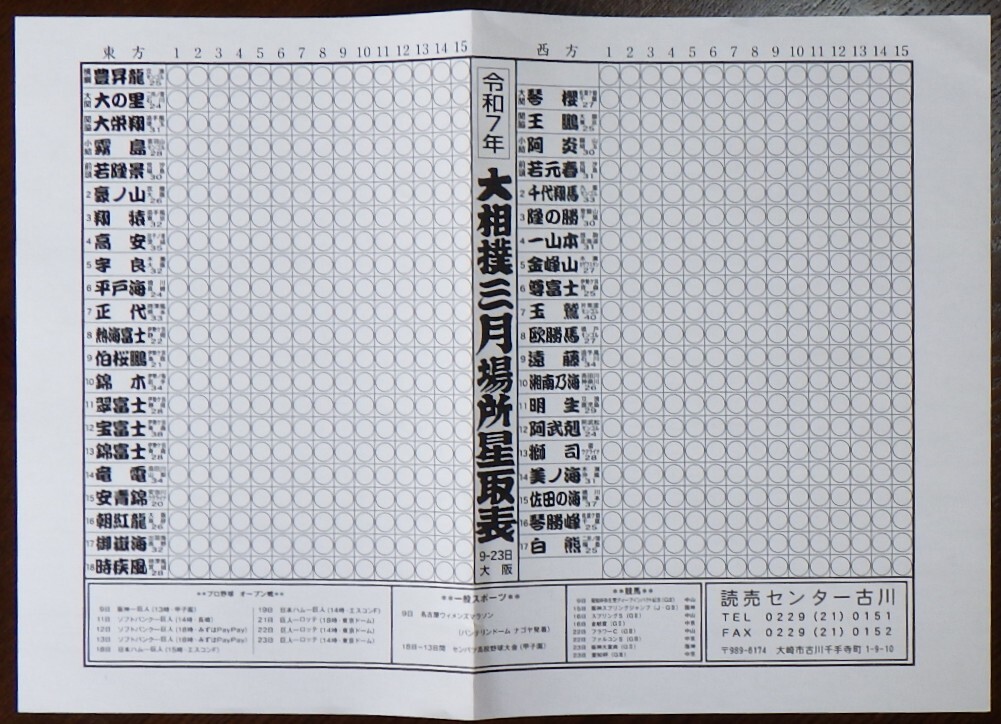 東方 1 2 3 4 5 6 7 8 9 10 11 12 13 14 15
横綱 豊昇龍 25
大関 大の里 24
関脇 大栄翔 31
小結 霧島 28
前頭 若隆景 30
2 豪ノ山 26
3 翔猿 32
4 高安 35
5 宇良 32
6 平戸海 24
7 正代 33
8 熱海富士 22
9 伯桜鵬 21
10 錦木 34
11 翠富士 28
12 宝富士 38
13 錦富士 28
14 竜電 34
15 安青錦 20
16 朝紅龍 26
17 御嶽海 32
18 時疾風 28
令和7年
大相撲三月場所星取表
9-23日
大阪
西方 1 2 3 4 5 6 7 8 9 10 11 12 13 14 15
大関 琴櫻 27
関脇 王鵬 25
小結 阿炎 30
前頭 若元春 31
2 千代翔馬 33
3 隆の勝 30
4 一山本 31
5 金峰山 27
6 尊富士 25
7 玉鷲 40
8 欧勝馬 27
9 遠藤 34
10 湘南乃海 26
11 明生 29
12 阿武剋 24
13 獅司 28
14 美ノ海 31
15 佐田の海 37
16 琴勝峰 25
17 白熊 25
**プロ野球 オープン戦**
9日 阪神ー巨人(12時・甲子園)
11日 ソフトバンクー巨人(14時・長崎)
12日 ソフトバンクー巨人(18時・みずほPayPay)
13日 ソフトバンクー巨人(18時・みずほPayPay)
18日 日本ハムー巨人(15時・エスコンF)
19日 日本ハムー巨人(14時・エスコンF)
21日 巨人ーロッテ(18時・東京ドーム)
22日 巨人ーロッテ(14時・東京ドーム)
23日 巨人ーロッテ(14時・東京ドーム)
**一般スポーツ**
9日 名古屋ウィメンズマラソン
(バンテリンドーム ナゴヤ発着)
18日~13日間 センバツ高校野球大会(甲子園)
**競馬**
15日 阪神スプリングジャンプ(J・GⅡ) 阪神
16日 スプリングS(GⅡ) 中山
22日 フラワーC(GⅢ) 中山
22日 ファルコンS(GⅢ) 中京
23日 阪神大賞典(GⅡ) 阪神
23日 愛知杯(GⅢ) 中京
読売センター古川
TEL 0229(21)0151
FAX 0229(21)0152
〒989-6174 大崎市古川千手寺町1-9-10